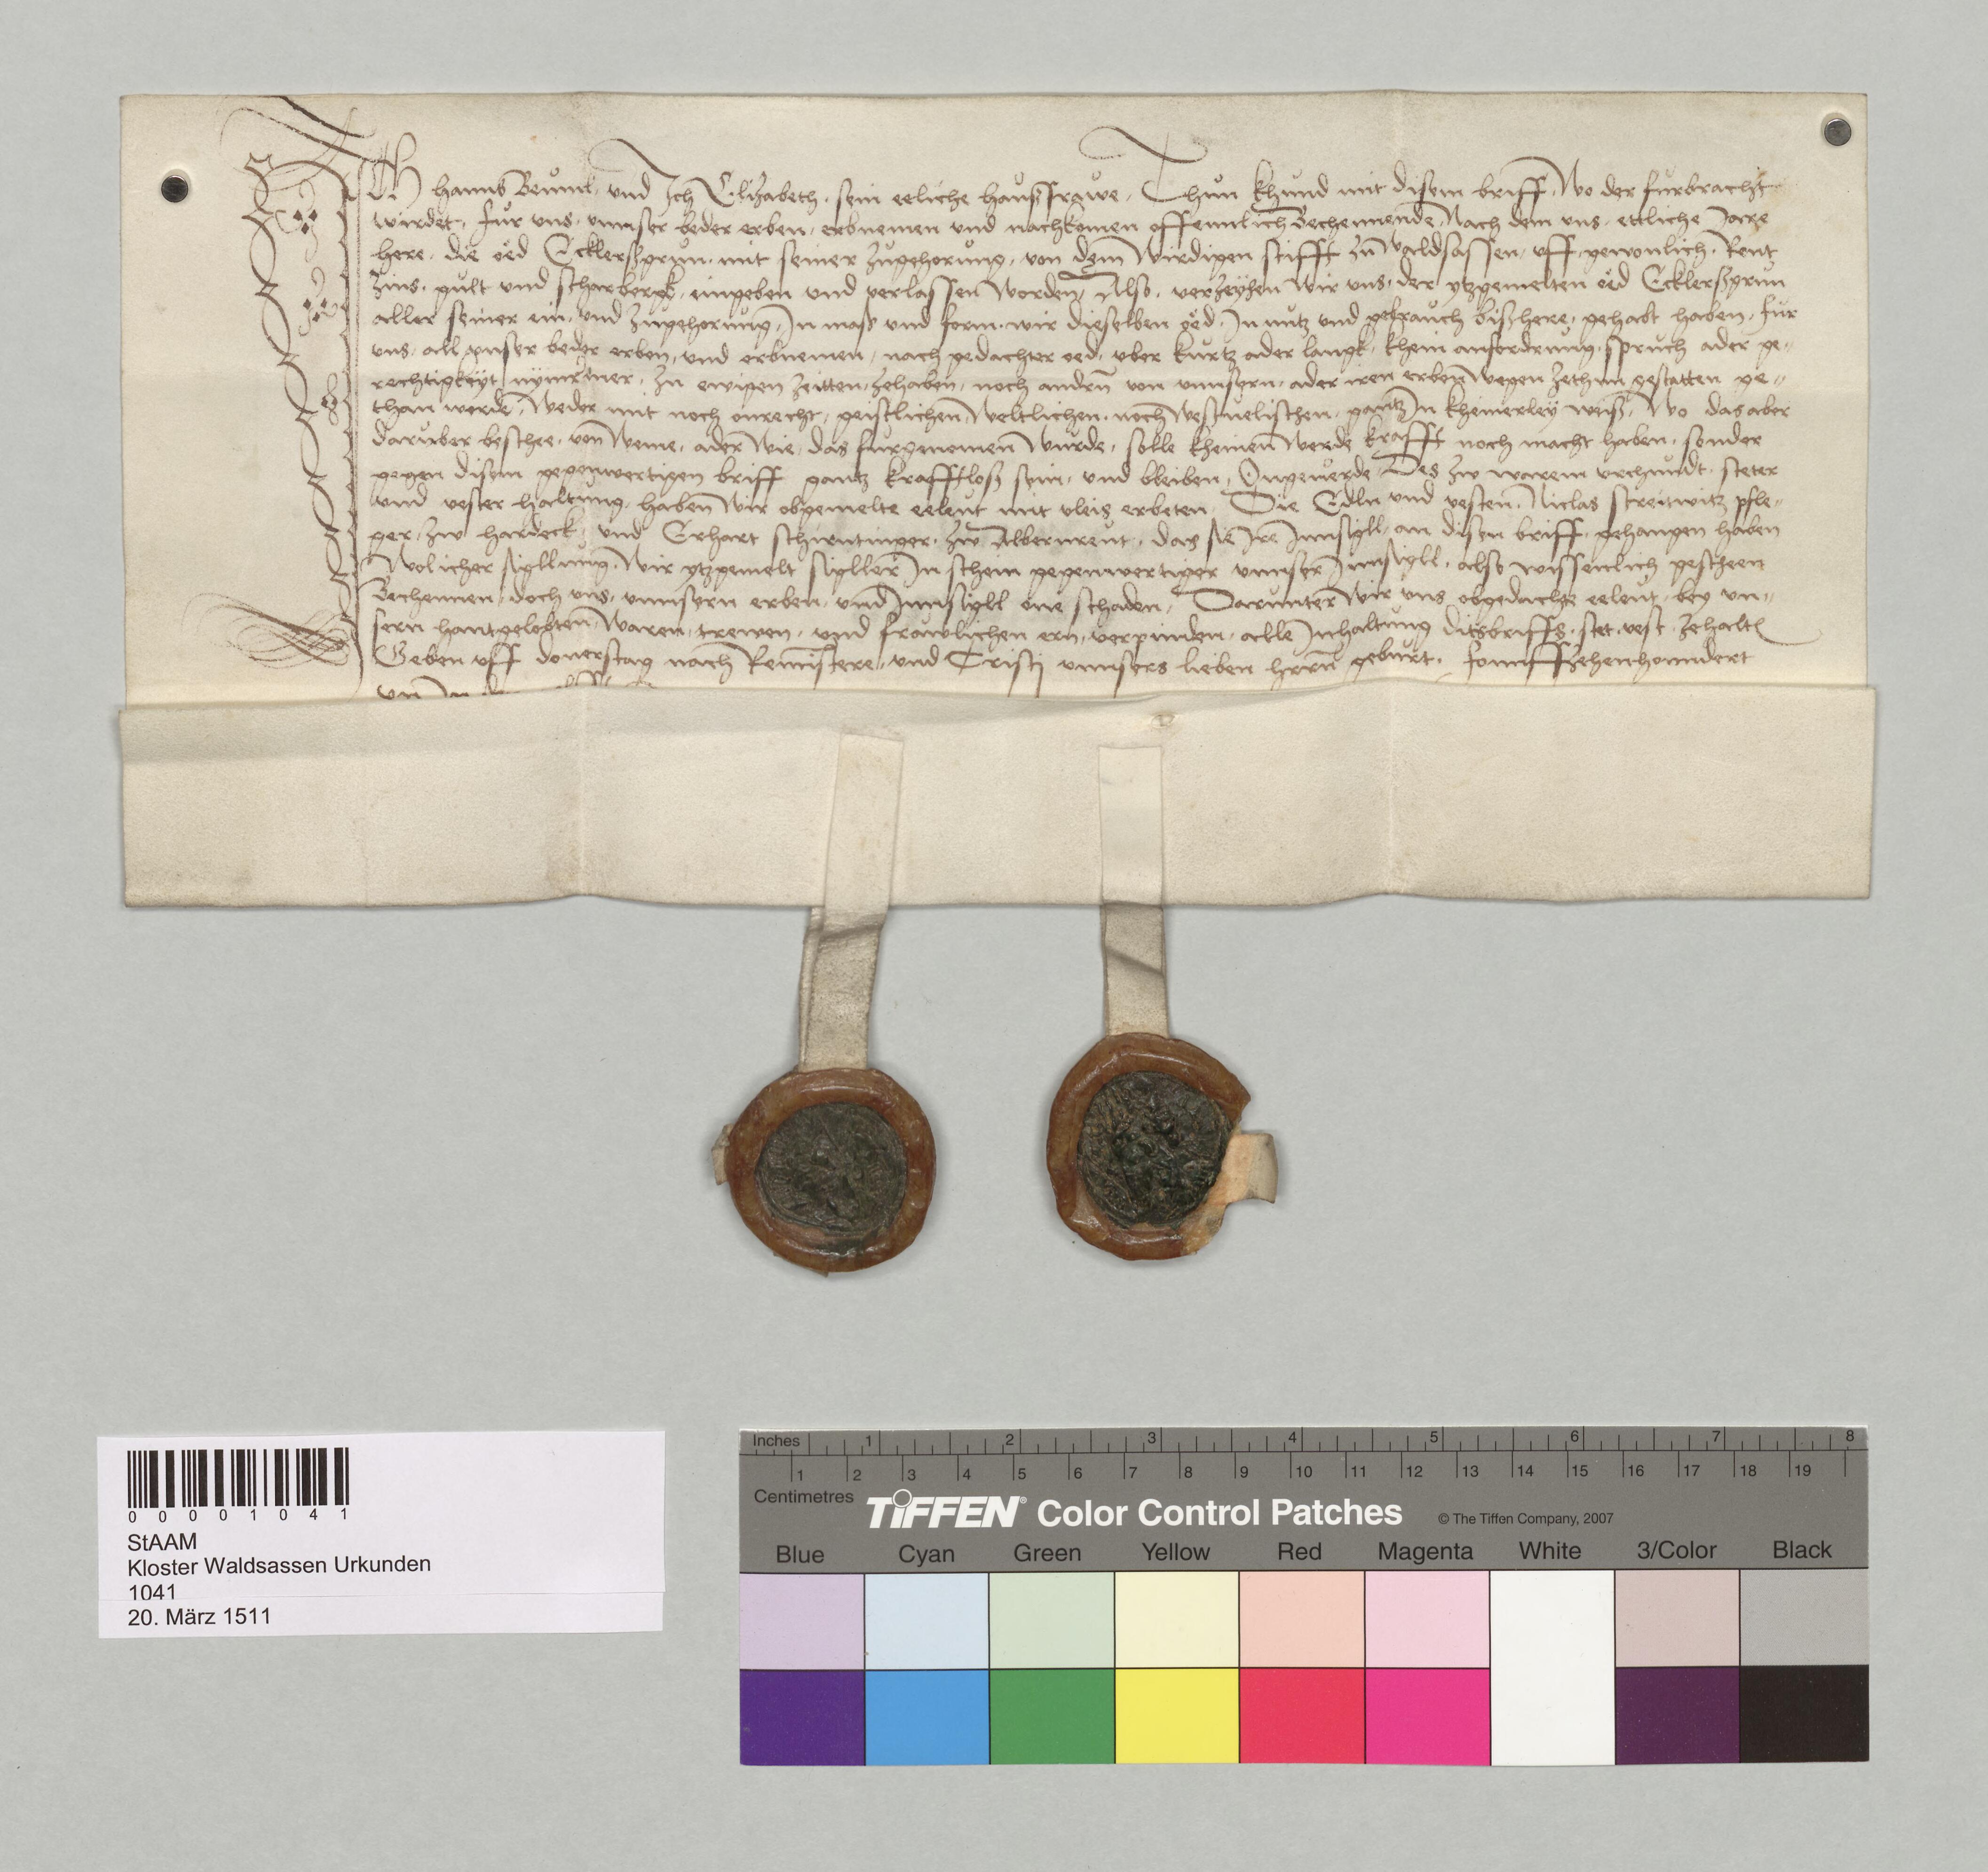 Ich hanns Beuml. und Ich Elizabeth. sein eeliche hausfrawe. Thun khund mit disem briff. Wo der furbracht
wirdet. fur uns. unnser beder erben. erbnemen und nachkomen offennlich Bechennende. Nach dem uns. ettliche Jare
here. die oed Ecklerßgrun. mit seiner zugehorung. von dem Wirdigen stifft zu Waldsassen. uff gewonlich. Rent
Zins. gult und scharberck. eingeben und verlassen worden. Also. verzeyhen wir uns. der ytzgemelten oed Ecklerßgrun
aller seiner ein. und zugehorung. In maß und form. wir dieselben oed. In nutz und gebrauch bißhere. gehabt haben. fur
uns. all unser beder erben. und erbnemen. nach gedachter oed. uber kurtz ader langk. khein anfordrung. spruch ader ge-
rechtigkeyt nymermer. zu ewigen Zeitten. zehaben. noch andern von unnsern. ader iren erben wegen zethun gestatten ge-
than werden. Weder mit noch onrecht. geistlichen Weltlichen. noch Westvelischen. gantz In kheinerley weiß. Wo das aber
daruber beschee. von Weme. ader Wie. das furgenomen wurde. solle kheinen werde krafft noch macht haben. sonder
gegen disem gegenwertigen briff gantz krafftloß sein. und bleiben. Ongeverde. Des zw warem urchundt. steter
und vester haltung. haben wir obgemelte eeleut mit vleis erbeten. Die Edln und vesten. Niclas streitwitz pfle-
ger. zw hardeck. und Erhart schirntinger. zw Albernreut. das sie Ire Innsigll. an disen briff. gehangen haben
Wolicher sigllung. Wir ytzgemelt siegller In schein gegenwertiger unnser Innsigll. also wissentlich gescheen
Bechennen. doch uns. unnsern erben. und Innsigll one schaden. Darunter wir uns obgedachte eeleut. bey un-
sern hantgelobten. Waren. trewen. und frawlichen ern. verpinden. alle Inhaltung ditsbriffs. stet. vest. zehalten
Geben uff donerstag nach Reminiscere. und Cristi unnsers lieben herrn geburt. fonnffzehenhonndert
Inches 1 2 3 4 5 6 7 8
1 2 3 4 5 6 7 8 9 10 11 12 13 14 15 16 17 18 19
Centimetres
TIFFEN® Color Control Patches © The Tiffen Company, 2007
Blue Cyan Green Yellow Red Magenta White 3/Color Black
00001041
StAAM
Kloster Waldsassen Urkunden
1041
20. März 1511